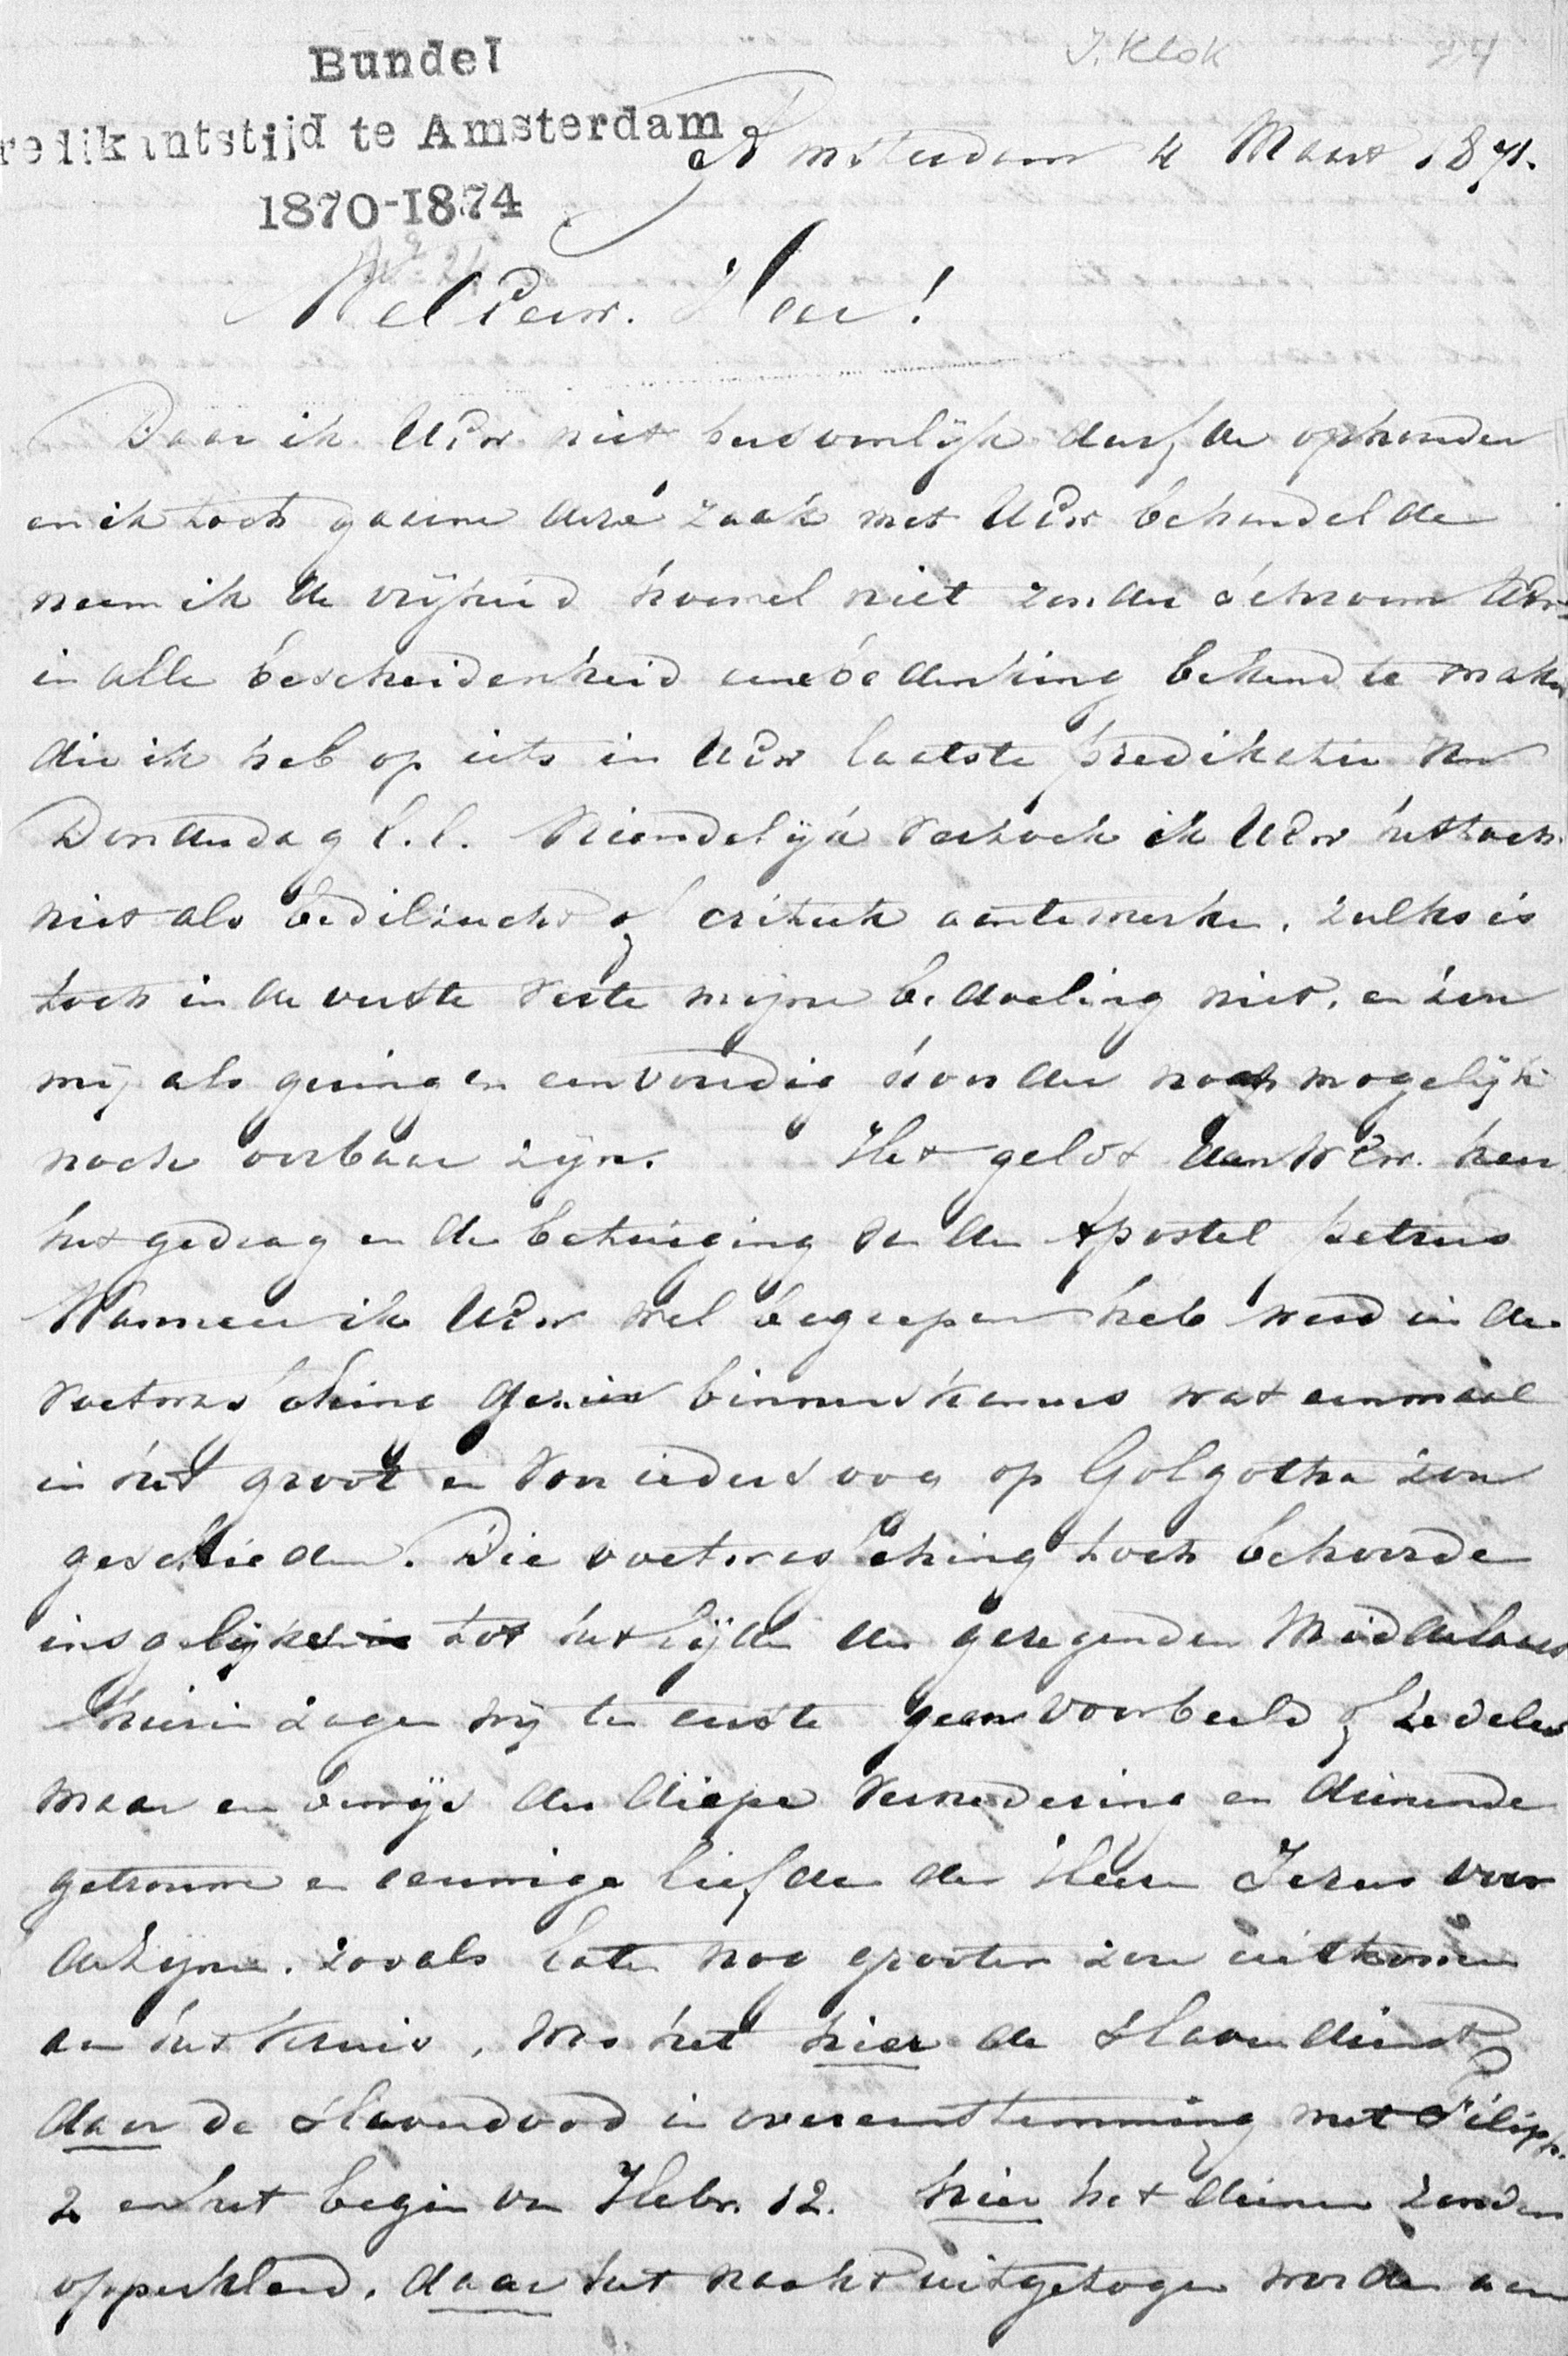 Bundel
redikantstijd te Amsterdam
1870-1874
J. Klok
24
Amsterdam 4 Maart 1871.
No 24
WelEerw. Heer!
Daar ik UEw niet persoonlijk durfde ophouden
en ik toch gaarne deze zaak met UEw behandelde
neem ik de vrijheid hoewel niet zonder schroom UEw
in alle bescheidenheid eene bedenking bekend te maken
die ik heb op iets in UEw laatste predikatie van
Donderdag l.l. Vriendelijk verzoek ik UEw het toch
niet als bedilzucht of critiek aantemerken, zulks is
toch in de verste verte mijne bedoeling niet, en zou
mij als gering en eenvoudig hoorder noch mogelijk
noch oorbaar zijn. Het geldt UwEw.
het gedrag en de betuiging van den Apostel petrus
Wanneer ik UEw wel begrepen heb werd in de
voetwassching gezien binnenskamers wat eenmaal
in het groot en voor ieders oog op Golgotha zou
geschieden. Die voetwassching toch behoorde
insgelijks tot het lijden des gezegenden Middelaars
hierin zagen wij ten eerste geen voorbeeld of zedeles
maar een bewijs der diepe vernedering en dienende
getrouwe en eeuwige liefde des Heeren Jezus voor
de zijnen. zooals later nog grooter zou uitkomen
aan het kruis, was het hier de slavendienst
daar de slavendood in overeenstemming met Filipp.
2 en het begin van Hebr. 12. hier het dienen zonder
opperkleed, daar het naakt uitgetogen worden aan